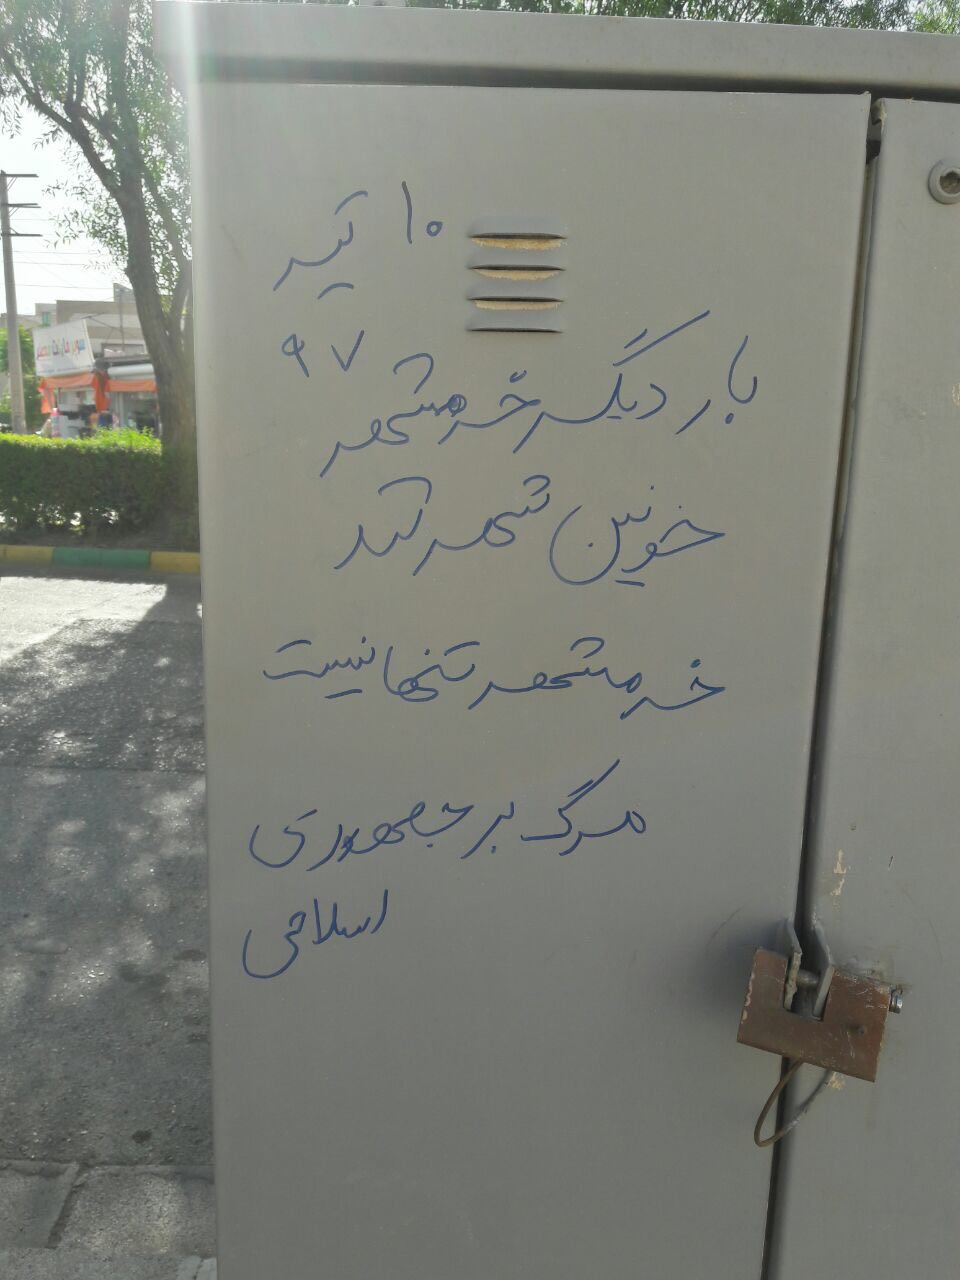 ۱۰ تیر
۹۷
بار دیگر خرمشهر
خونین شهر شد
خرمشهر تنها نیست
مرگ بر جمهوری
اسلامی
سوپر مارکت